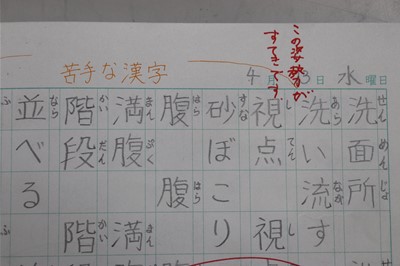 苦手な漢字
この姿勢が
すてきです
4月 3日 水曜日
洗面所
せんめんじょ
洗い流す
あらなが
視点 視
してん し
砂ぼこり
すな
腹 腹
はら はら
満腹 満
まんぷく まん
階段 階
かいだん かい
並べる
なら